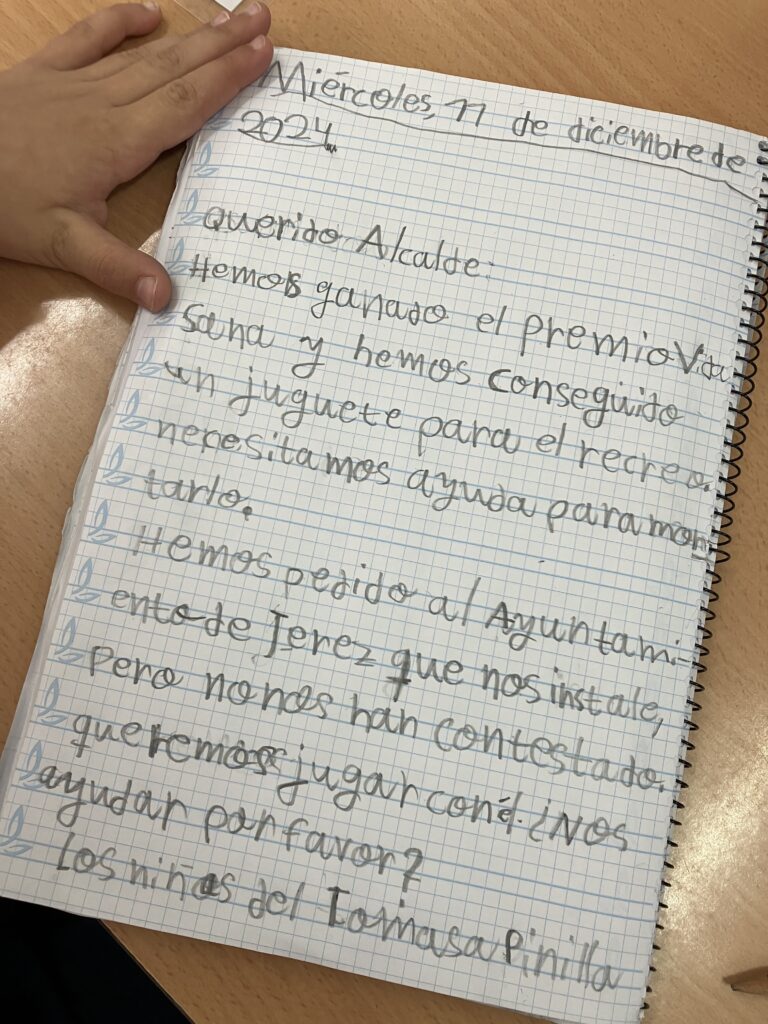 Miércoles, 11 de diciembre de
2024.
Querido Alcalde:
Hemos ganado el premio Vida
Sana y hemos conseguido
un juguete para el recreo.
necesitamos ayuda para mon
tarlo.
Hemos pedido al Ayuntami-
ento de Jerez que nos instale,
Pero no nos han contestado.
queremos jugar con él. ¿Nos
ayudar por favor?
Los niños del Tomasa Pinilla